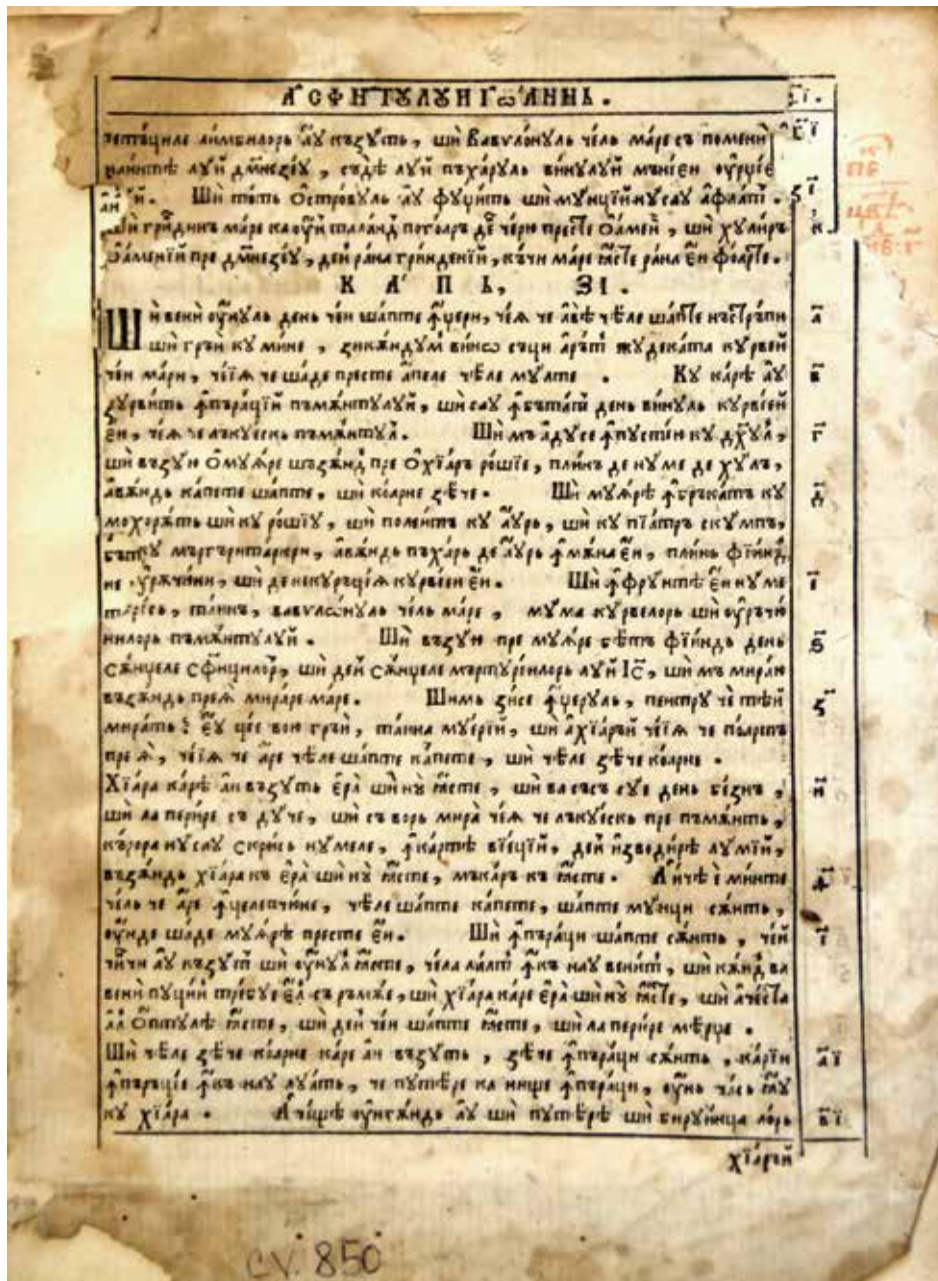 А҆ СФН҃ТꙋЛꙋИ ІѠА́ННЬ.
четъциле лимбилорь аꙋ къзꙋть, ши Вавѵлѡнꙋль чель маре съ помени
наинтѣ лꙋй дмнезеꙋ, съдѣ лꙋй пъхарꙋль винꙋлꙋй мънїен оурцїе
лꙋй. Ши тоть Ѻстровꙋль аꙋ фꙋџить ши мꙋнцїй нꙋсаꙋ афлать.
Ши гриндинъ маре ка оун талант погоаръ де черю престе оамени, ши хꙋлиръ
ѻаменїй пре дмнезеꙋ, дей рана гринденїй, къчи маре ꙗсте рана ей фоарте.
КА́ПЬ, ЗІ.
Ши вени оунꙋль день чей шапте ꙟџери, чеꙗ че авѣ чѣле шапте нъстрапи
ши гръи кꙋ мине, зикѫндꙋм винѡ съци арът жꙋдеката кꙋрвей
чей мари, чеїꙗ че шаде престе апеле чѣле мꙋлте. Кꙋ карѣ аꙋ
кꙋрвить ꙟпъраций пъмѫнтꙋлꙋй, ши саꙋ ꙟбътать день винꙋль кꙋрвїей
ей, чеꙗ че лъкꙋескь пъмѫнтꙋл. Ши мъ адꙋсе ꙟпꙋстїе кꙋ дхꙋл,
ши възꙋю ѻмꙋꙗре шъзѫнд пре ѻхїаръ рошїе, плинъ де нꙋме де хꙋлъ,
авѫндь капете шапте, ши коарне зѣче. Ши мꙋꙗрѣ ꙟбръкатъ кꙋ
мохорѫть ши кꙋ рошїꙋ, ши полеитъ кꙋ аꙋрь, ши кꙋ пїатръ скꙋмпъ,
ши кꙋ мъргъритарюри, авѫндь пъхарь де аꙋрь ꙟмѫна ей, плинь фїинд
де оурѫчюни, ши де некꙋръцїꙗ кꙋрвїей ей. Ши ꙟфрꙋнтѣ ей нꙋме
скрїсь, таинъ, вавѵлѡнꙋль чель маре, мꙋма кꙋрвелорь ши оурѫчю
нилорь пъмѫнтꙋлꙋй. Ши възꙋю пре мꙋꙗре бѣтъ фїиндь день
сѫнџеле сфинцилор, ши дей сѫнџеле мъртꙋрїилорь лꙋй ІС҃, ши мъ мираю
възѫндь преꙗ мираре маре. Шимь зисе ꙟџерꙋль, пентрꙋ че тѣй
мирать? Еꙋ цїе вою гръи, таина мꙋерїй, ши а хїаръй чеїꙗ че поартъ
пре ꙗ, чеїꙗ че аре чѣле шапте капете, ши чѣле зѣче коарне.
Хїара карѣ ан възꙋть ера ши нꙋ ꙗсте, ши ва съсъ сꙋе день безнъ,
ши ла перире съ дꙋче, ши съ ворь мира чеꙗ че лъкꙋескь пре пъмѫнть,
къророра нꙋсаꙋ скрись нꙋмеле, ꙟкартѣ вїецїй, дей изводирѣ лꙋмїй,
възѫндь хїара къ ера ши нꙋ ꙗсте, мъкаръ къ ꙗсте. Аичѣ е минте
чель че аре ꙟцелепчюне, чѣле шапте капете, шапте мꙋнци сѫнть,
оунде шаде мꙋꙗрѣ престе ей. Ши ꙟпъраци шапте сѫнть, чей
чинчи аꙋ къзꙋт ши оунꙋл ꙗсте, чела лалт ꙟкъ наꙋ венит, ши кѫнд ва
вени пꙋцин требꙋе ел съ ръмѫе, ши хїара каре ера ши нꙋ ꙗсте, ши ачеста
ал ѻптꙋлѣ ꙗсте, ши дей чей шапте ꙗсте, ши ла перире мѣрџе.
Ши чѣле зѣче коарне каре ан възꙋть, зѣче ꙟпъраци сѫнть, карїи
ꙟпъръцїе ꙟкъ наꙋ лꙋать, че пꙋтѣре ка нище ꙟпъраци, оунь чась ꙗꙋ
кꙋ хїара. Ачищѣ оунгѫндь аꙋ ши пꙋтѣрѣ ши бирꙋинца лорь
хїаръй
CV. 850